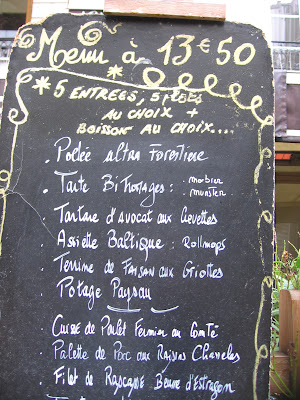 Menu à 13€50
* 5 ENTREES, 5 PLATS
AU CHOIX +
BOISSON AU CHOIX...
. Poêlée altra Forestière
. Tarte Bi fromages : morbier
munster
. Tartare d'avocat aux Crevettes
. Assiette Baltique : Rollmops
. Terrine de Faisan aux Griottes
. Potage Paysan
. Cuisse de Poulet Fermier au Comté
. Palette de Porc aux Raisins
. Filet de Rascasse Beurre d'Estragon